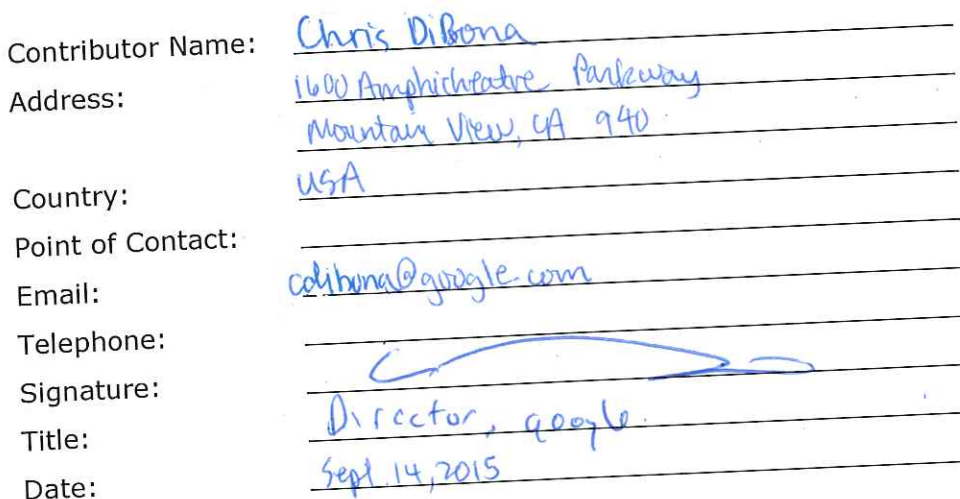 Contributor Name: Chris DiBona
Address: 1600 Amphitheatre Parkway
Mountain View, CA 940
Country: USA
Point of Contact:
Email: cdibona@google.com
Telephone:
Signature:
Title: Director, google.
Date: Sept. 14, 2015